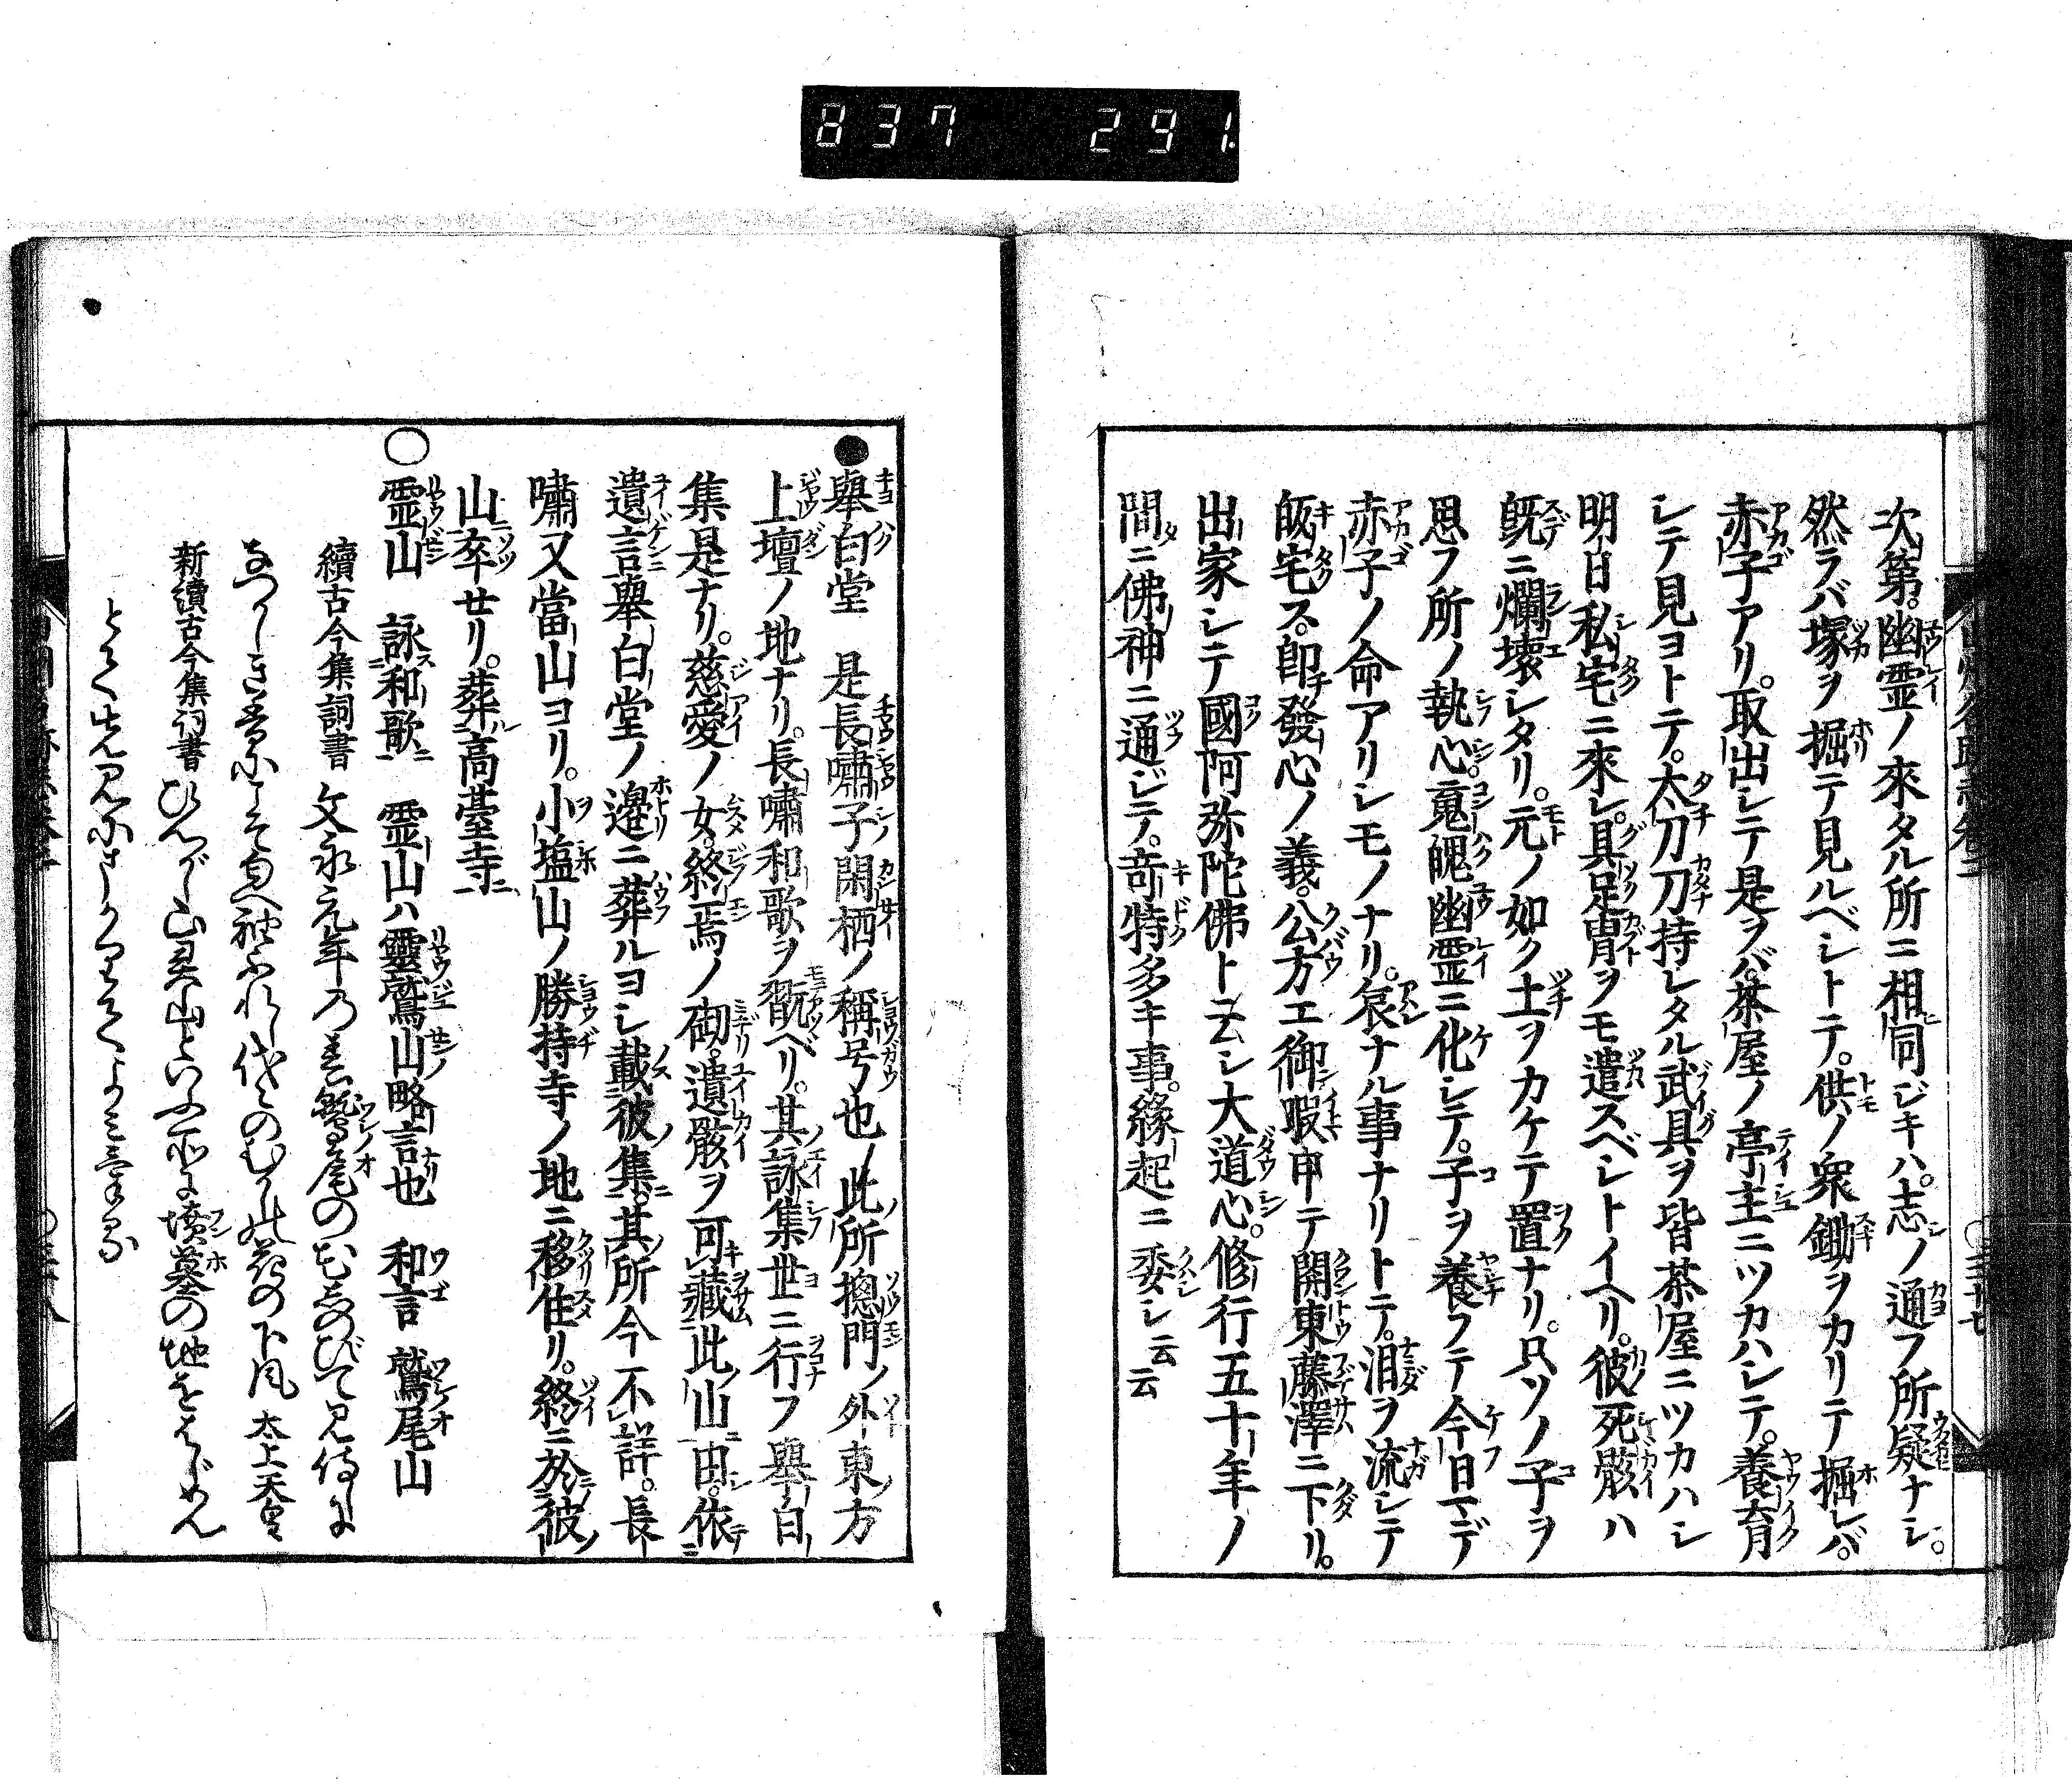 837 291.
次第。幽霊ノ來タル所ニ相同ジキハ。志ノ通フ所疑ナシ。
然ラバ塚ヲ掘テ見ルベシトテ。供ノ衆鋤ヲカリテ掘レバ。
赤子アリ。取出シテ是ヲバ。茶屋ノ亭主ニツカハシテ。養育
シテ見ヨトテ。太刀刀持レタル武具ヲ皆茶屋ニツカハシ
明日私宅ニ來レ。具足冑ヲモ遣スベシトイヘリ。彼死骸ハ
既ニ爛壊シタリ。元ノ如ク土ヲカケテ置ナリ。只ソノ子ヲ
思フ所ノ執心。䰟魄幽霊ニ化シテ。子ヲ養フテ今日マデ
赤子ノ命アリシモノナリ。哀ナル事ナリトテ。泪ヲ流シテ
皈宅ス。即發心ノ義。公方エ御暇申テ関東藤澤ニ下リ。
出家シテ國阿弥陀佛ト云シ大道心。修行五十年ノ
間ニ佛神ニ通ジテ。竒特多キ事。緣起ニ委シ云云
●擧白堂 是長嘯子閑栖ノ稱号也此所揔門ノ外東方
上壇ノ地ナリ。長嘯和歌ヲ翫ベリ。其詠集世ニ行フ擧白
集是ナリ。慈愛ノ女。終焉ノ砌。遺骸ヲ可藏此山由。依
遺言擧白堂ノ邊ニ葬ルヨシ載彼集。其所今不詳。長
嘯又當山ヨリ。小塩山ノ勝持寺ノ地ニ移住リ。終ニ於彼
山卒セリ。葬高臺寺
○霊山 詠和歌 霊山ハ靈鷲山略言也 和言 鷲尾山
續古今集詞書 文永元年乃春鷲尾の花忍びて見侍に
なつかしき香にこそ匂へ袖ふれし代々のむかしの花の下風 太上天皇
新續古今集詞書 ひんがし山霊山といふ所に墳墓の地をさだめん